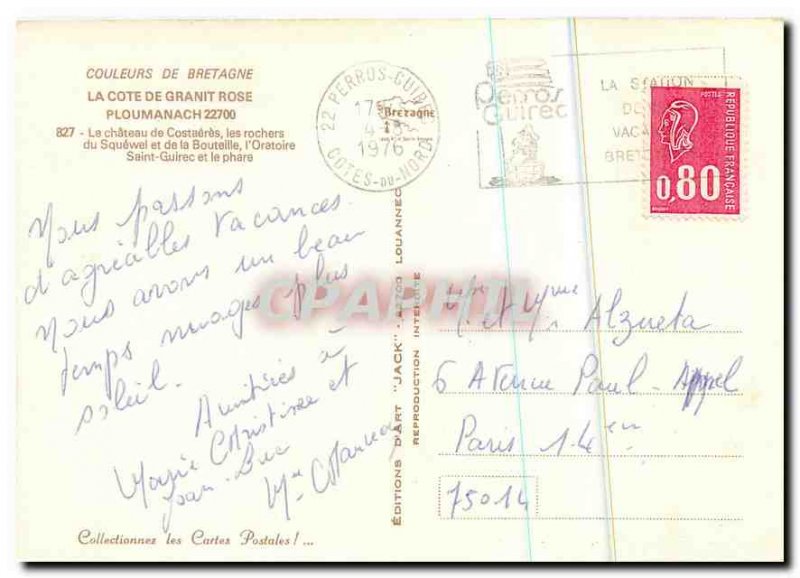 COULEURS DE BRETAGNE
LA COTE DE GRANIT ROSE
PLOUMANACH 22700
827 - Le château de Costaérès, les rochers
du Squéwel et de la Bouteille, l'Oratoire
Saint-Guirec et le phare
22 PERROS-GUIREC
1976
COTES-DU-NORD
Bretagne
Perros
Guirec
LA STATION
VACA
BRET
POSTES
REPUBLIQUE FRANÇAISE
0,80
Nous passons
d'agréables vacances.
Nous avons un beau
temps nuages plus
soleil.
Amitiés à
Marie Christine et
Jean-Luc
Mme
EDITIONS D'ART "JACK" - 22700 LOUANNEC
REPRODUCTION INTERDITE
CPAPHIL
Mr et Mme Alzueta
6 Avenue Paul-Appel
Paris 14em
75014
Collectionnez les Cartes Postales ! ...